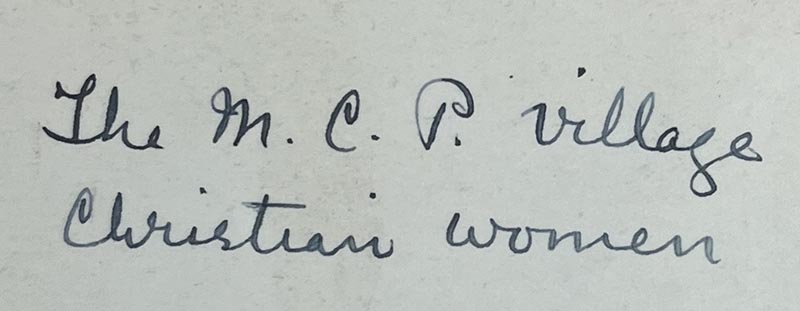 The M. C. P. village
Christian women